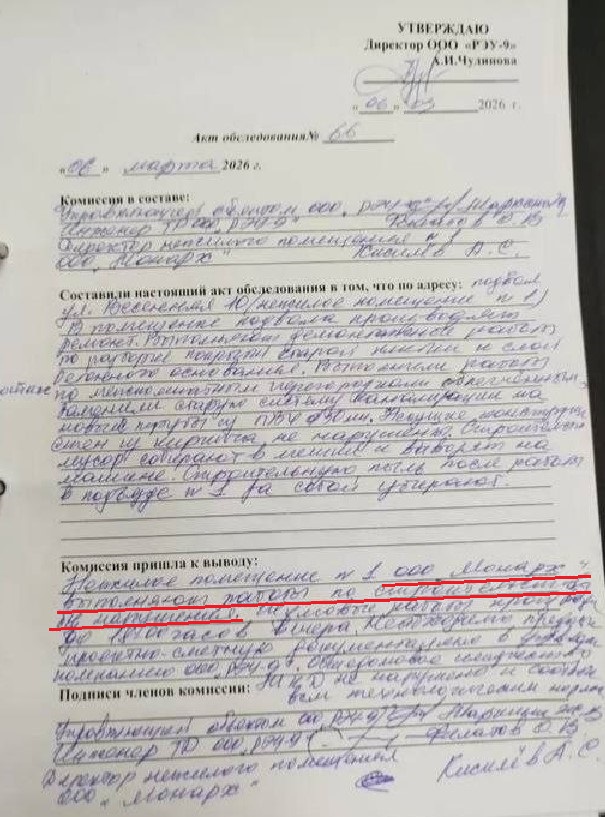 УТВЕРЖДАЮ
Директор ООО «РЭУ-9»
А.И.Чудинова
«06» 03 2026 г.
Акт обследования № 66
«06» марта 2026 г.
Комиссия в составе:
Управляющая объектом ООО "РЭУ-9"
Инженер ТО ООО "РЭУ-9" Филатов О.В.
Директор нежилого помещения № 1
ООО "Монарх" Киселёв А.С.
Составили настоящий акт обследования в том, что по адресу: подвал
ул. Весенняя 10/нежилое помещение № 1)
В помещение подвала производят
ремонт. Выполняют демонтажные работы
по разборке покрытия старой плитки и слоя
бетонного основания. Выполнили работы
по межкомнатным перегородкам
Заменили старую систему канализации на
новые трубы из ПВХ Несущие конструкции
стен из кирпича, не нарушены. Строительный
мусор собирают в мешки и вывозят на
машине. Строительную пыль после работы
в подъезде № 1 за собой убирают.
Комиссия пришла к выводу:
Нежилое помещение № 1 ООО "Монарх"
выполняют работы по строительству
не нарушения. работы
до часов вечера. Необходимо
проектно-сметную документацию в
компанию ООО "РЭУ-9". Общедомовое имущество
не нарушено и
всем технологическим
Подписи членов комиссии:
Управляющий объектом ООО "РЭУ-9"
Инженер ТО ООО "РЭУ-9" Филатов О.В.
Директор нежилого помещения
ООО "Монарх" Киселёв А.С.